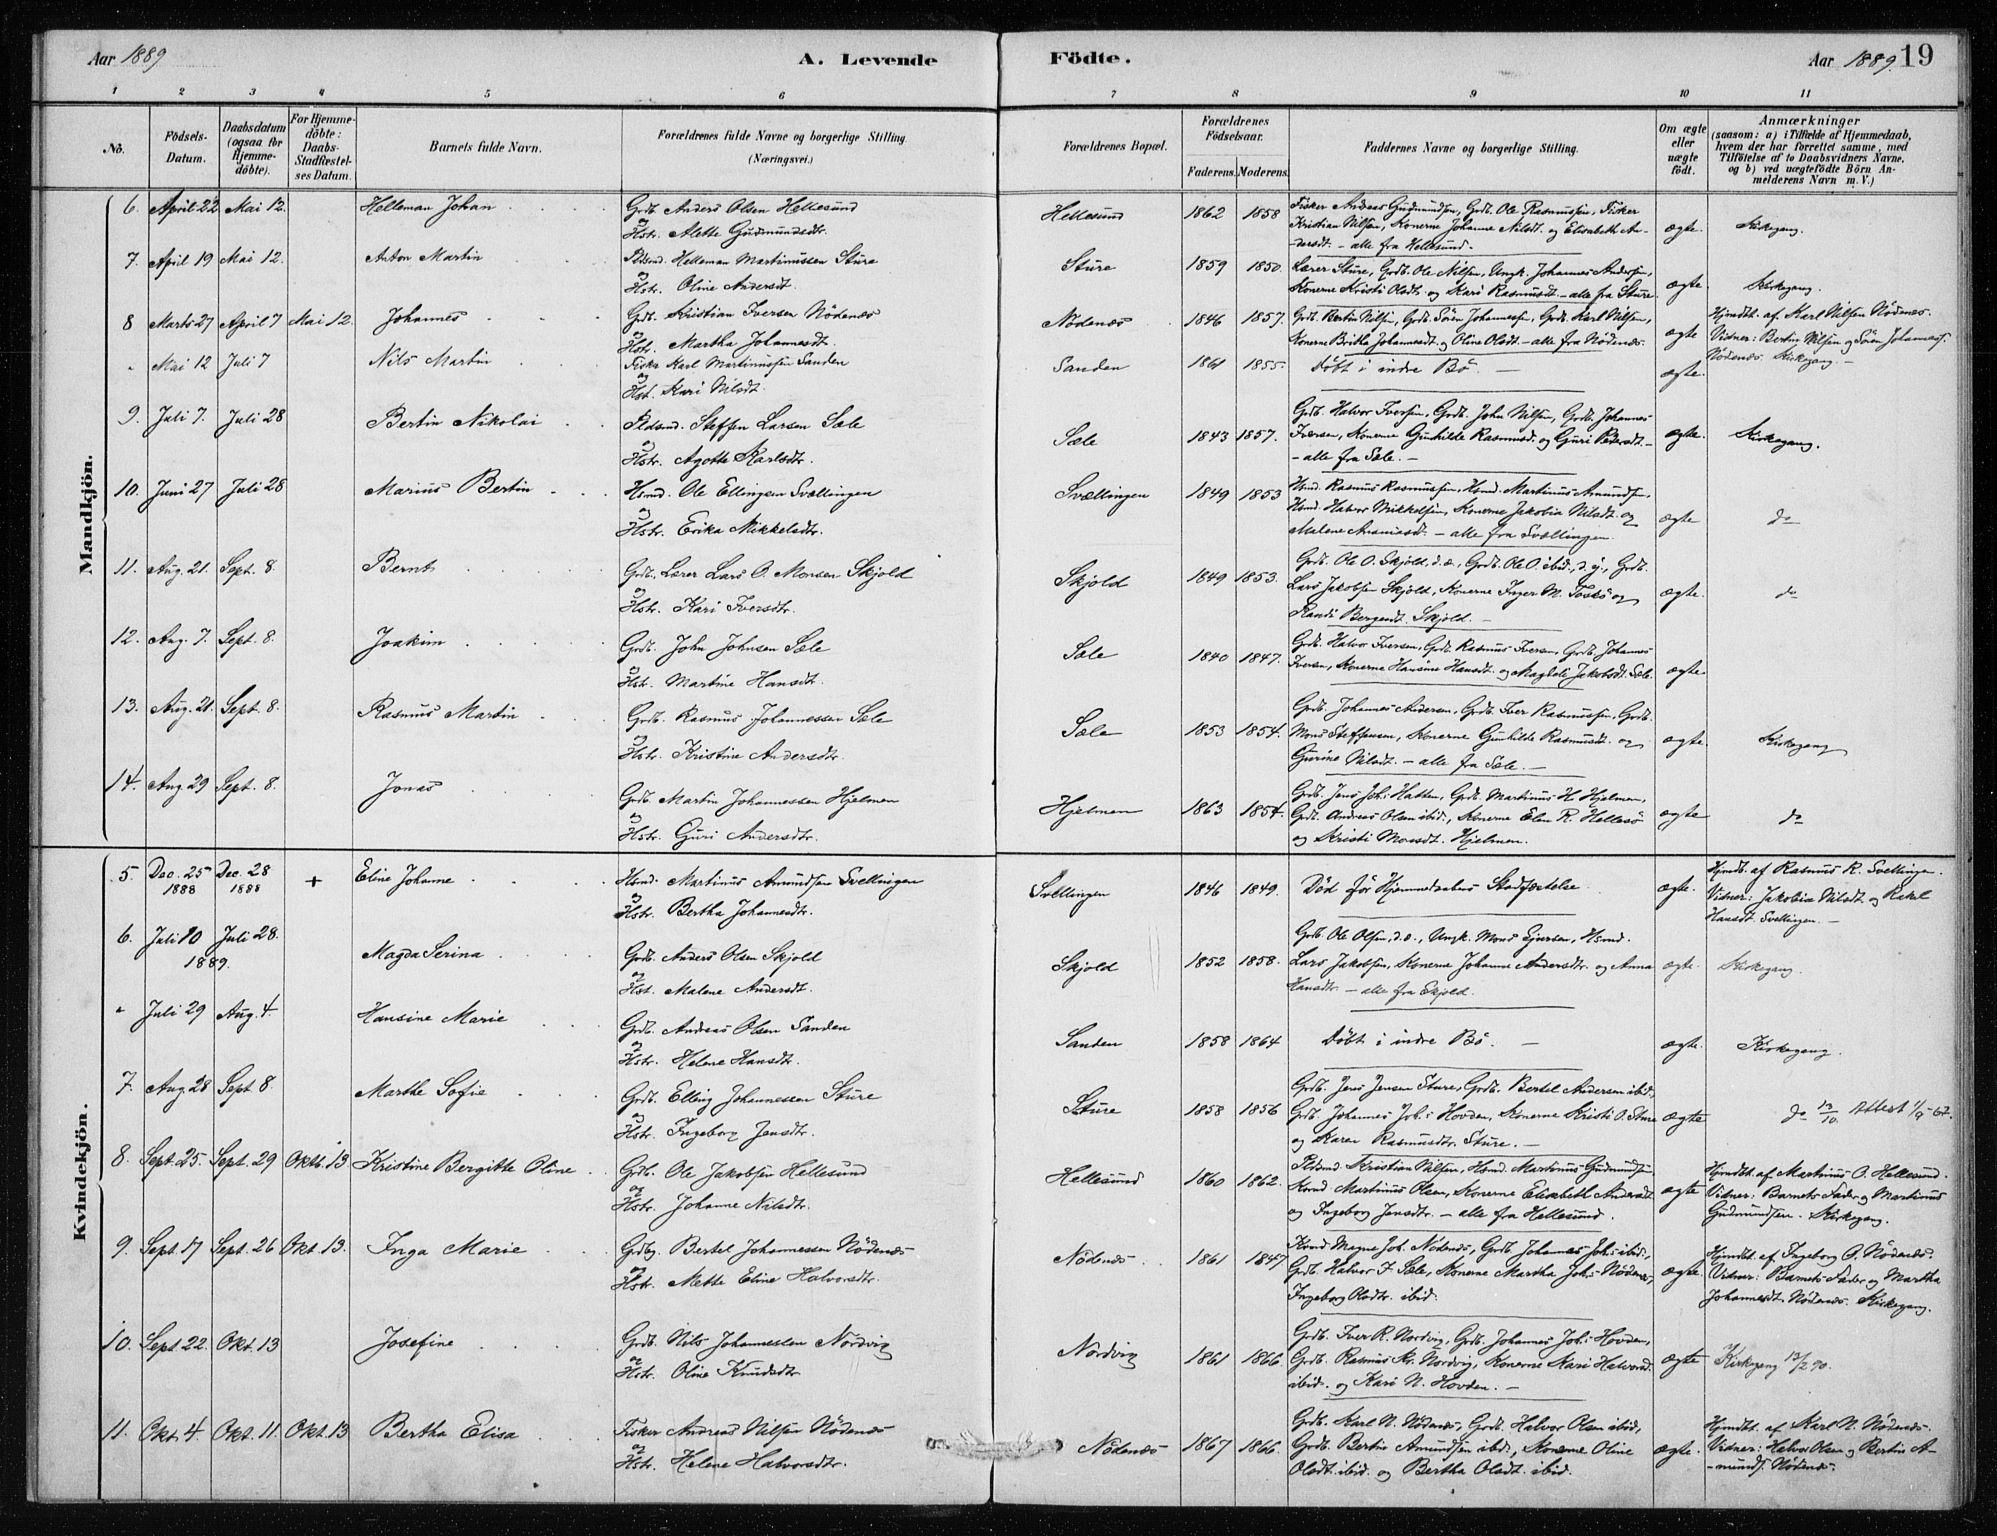 Aar 1889
A. Levende
Födte.
Aar 1889. 19
1 2 3 4 5 6 7 8 9 10 11
No.
Födsels-Datum.
Daabsdatum (ogsaa for Hjemme-döbte).
For Hjemme-döbte: Daabs-Stadfæstel-ses Datum.
Barnets fulde Navn.
Forældrenes fulde Navne og borgerlige Stilling. (Næringsvei.)
Forældrenes Bopæl.
Forældrenes Födselsaar.
Faderens. Moderens.
Faddernes Navne og borgerlige Stilling.
Om ægte eller uægte födt.
Anmærkninger
(saasom: a) i Tilfælde af Hjemmedaab, hvem der har forrettet samme, med Tilföielse af to Daabsvidners Navne, og b) ved uægtefödte Börn An-melderens Navn m. V.)
Mandkjön.
6. April 22 Mai 12. Helleman Johan Grdb. Anders Olsen Hellesund
og Hstr. Alette Gudmundsdtr.
Hellesund 1862 1858 Fisker Andreas Gudmundsen, Grdb. Ole Rasmussen, Fisker
Kristian Nilsen, Konerne Johanne Nilsdt. og Elisabeth An-
dersdt. - alle fra Hellesund.
ægte. Kirkegang.
7. April 19 Mai 12. Anton Martin Pldsmd. Helleman Martinussen Sture
og Hstr. Oline Andersdt.
Sture 1859 1850. Lærer Sture, Grdb. Ole Nilsen, Ungk. Johannes Andersen,
Konerne Kristi Olsdt. og Kari Rasmusdt. - alle fra Sture.
ægte. Kirkegang.
8 Marts 27 April 7 Mai 12. Johannes Grdb. Kristian Iversen Nödenæs
og Hstr. Martha Johannesdt.
Nödenæs 1846 1857. Grdb. Bertin Nilsen, Grdb. Sören Johannessen, Grdb. Karl Nilsen,
Konerne Britha Johannesdt. og Oline Olsdt. - alle fra Nödenæs.
ægte Hjmdbt. af Karl Nilsen Nödenæs.
Vidner: Bertin Nilsen og Sören Johanness.
Nödenæs. Kirkegang. -
" Mai 12 Juli 7 Nils Martin Fisker Karl Martinussen Sanden
og Hst. Kari Nilsdt.
Sanden 1861 1855. Döbt i indre Bö. -
ægte.
9. Juli 7. Juli 28 Bertin Nikolai Pldsmd. Steffen Larsen Sæle
og Hstr. Agotte Karlsdtr.
Sæle 1843 1857. Grdb. Halvor Iversen, Grdb. John Nilsen, Grdb. Johannes
Iversen, Konerne Gunhilde Rasmusd. og Guri Pedersdt. -
- alle fra Sæle. -
ægte Kirkegang.
10. Juni 27 Juli 28 Marius Bertin Hsmd. Ole Ellingsen Svællingen
og Hstr. Erika Mikkelsdtr.
Svællingen 1849 1853 Hsmd. Rasmus Rasmussen, Hsmd. Martinus Amundsen,
Hsmd. Halvor Mikkelsen, Konerne Jakobia Nilsdt. og
Malene - alle fra Svællingen.
ægte do
11. Aug. 21. Sept. 8. Bernt Grdb. Lærer Lars O. Monsen Skjold
og Hstr. Kari Iversdtr.
Skjold 1849 1853. Grdb. Ole O. Skjold, d. æ., Grdb. Ole O. ibid., d. y., Grdb.
Lars Jakobsen Skjold, Konerne Inger M. og
Randi Skjold. -
ægte. do
12. Aug. 7. Sept. 8. Joakim Grdb. John Johnsen Sæle
og Hstr. Martine Hansdt.
Sæle 1840 1847. Grdb. Halvor Iversen, Grdb. Rasmus Iversen, Grdb. Johannes
Iversen, Konerne Hansine Hansdt. og Magdeli Jakobsdt. Sæle.
ægte
13. Aug. 21. Sept. 8. Rasmus Martin Grdb. Rasmus Johannessen Sæle
og Hstr. Kristine Andersdtr.
Sæle 1853 1854. Grdb. Johannes Andersen, Grdb. Iver Rasmussen, Grdb.
Mons Steffensen, Konerne Gunhilde Rasmusdt. og
Gurine Nilsdt. - alle fra Sæle. -
ægte. Kirkegang
14. Aug 29 Sept. 8. Jonas Grdb. Martin Johannessen Hjelmen
og Hstr. Guri Andersdtr.
Hjelmen 1863 1854. Grdb. Jens Joh. Hatten, Grdb. Martinus H. Hjelmen,
Grdb. Andreas Olsen ibid., Konerne Elen R. Hellesö
og Kristi Monsdt. Hjelmen.
ægte do
Kvindekjön.
5. Dec. 25 1888 Dec. 28 1888 + Eline Johanne Hsmd. Martinus Amundsen Svellingen
og Hstr. Bertha Johannesdtr.
Svellingen 1846 1849. Död för Hjemmedaabens Stadfæstelse
ægte. Hjmdb. af Rasmus R. Svellingen.
Vidner: Jakobia Nilsdt og Rakel
Hansdt. Svellingen. -
6. Juli 10 Juli 28. 1889. Magda Serina Grdb. Anders Olsen Skjold
og Hst. Malene Andersdt.
Skjold 1852 1858. Grdb. Ole Olsen, d. æ., Ungk. Mons Sjursen, Hsmd.
Lars Jakobsen, Konerne Johanne Andersdtr. og Anna
Hansdtr. - alle fra Skjold.
ægte. Kirkegang.
" Juli 29 Aug. 4. Hansine Marie Grdb. Andreas Olsen Sanden
og Hstr. Helene Hansdt.
Sanden 1858 1864 Döbt i indre Bö. -
ægte. Kirkegang.
7. Aug. 28 Sept 8. Marthe Sofie Grdb. Elling Johannessen Sture
og Hstr. Ingeborg Jensdtr.
Sture 1858 1856 Grdb. Jens Jensen Sture, Grdb. Bertel Andersen ibid.,
Grdb. Johannes Joh. Hovden, Konerne Kristi O. Sture
og Karen Rasmusdtr. Sture. -
ægte do 13/10. Attest 1/9-62.
8. Sept. 25. Sept. 29 Oktb. 13 Kristine Bergitte Oline Grdb. Ole Jakobsen Hellesund
og Hstr. Johanne Nilsdtr.
Hellesund 1860 1862. Pldsmd. Kristian Nilsen, Hsmd. Martinus Gudmundsen,
Martinus Olsen, Konerne Elisabeth Andersdt
og Ingeborg Jensdtr. - alle fra Hellesund.
ægte Hjmdbt. af Martinus O. Hellesund.
Vidner: Barnets Fader og Martinus
Gudmundsen. Kirkegang.
9. Sept. 17 Sept. 26 Okt. 13. Inga Marie Grdbg. Bertel Johannessen Nödenæs
og Hstr. Mette Eline Halvorsdtr.
Nödenæs 1861 1847 Magne Joh. Nödenæs, Grdb. Johannes Joh. ibid.,
Grdb. Halvor I. Sæle, Konerne Martha Joh. Nödenæs,
Ingeborg Olsdtr. ibid.
ægte. Hjmdbt. af Ingeborg O. Nödenæs.
Vidner: Barnets Fader og Martha
Johannesdt. Nödenæs. Kirkegang.
10. Sept. 22. Okt. 13 Josefine Grdb. Nils Johannessen Nordvig
og Hstr. Oline Knudsdtr
Nordvig 1861 1866. Grdb. Iver R. Nordvig, Grdb. Johannes Joh. Hovden,
Grdb. Rasmus Kr. Nordvig, Konerne Kari Halvorsd.
ibid. og Kari N. Hovden. -
ægte Kirkegang 13/2 90.
11. Okt. 4. Okt. 11. Okt. 13 Bertha Elisa Fisker Andreas Nilsen Nödenæs
og Hstr. Helene Halvorsdtr.
Nödenæs 1867 1866. Grdb. Karl N. Nödenæs, Grdb. Halvor Olsen ibid.,
Grdb. Bertin Amundsen ibid., Konerne Oline
Olsdt. ibid. og Bertha Olsdt. ibid.
ægte. Hjmdbt. af Karl N. Nödenæs.
Vidner: Halvor Olsen og Bertin A-
munds. Nödenæs.